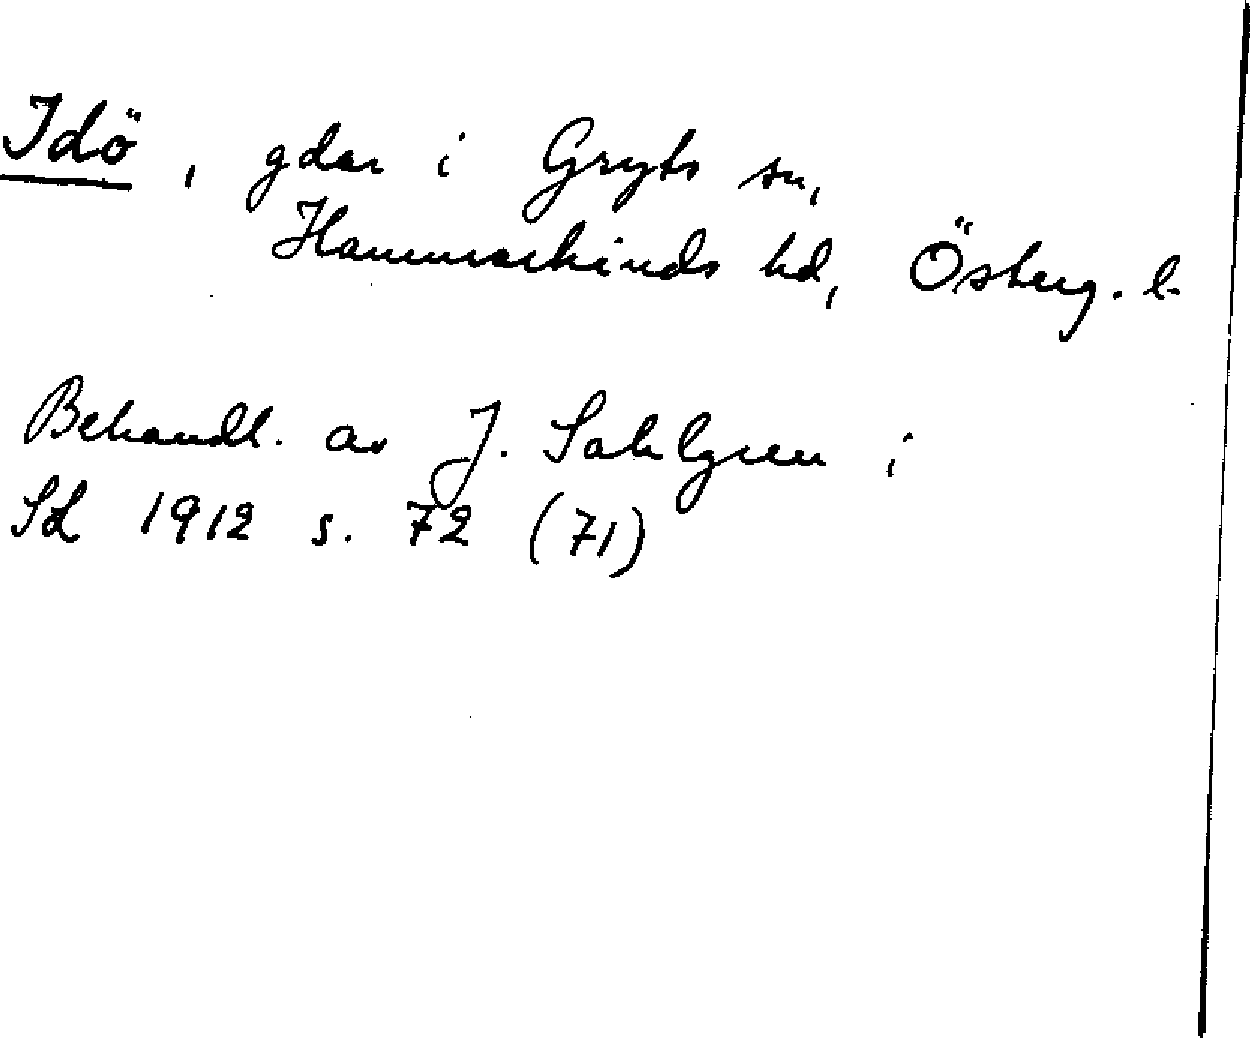 Idö, gdar i Gryts sn,
Hammarkinds hd, Österg. l.
Behandl. av J. Sahlgren i
SoL 1912 s. 72 (71)